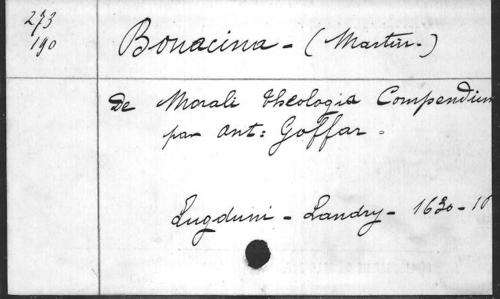 273
190
Bonacina - (Martin.)
De Morali theologia Compendium
par Ant: Goffar -
Lugduni - Landry - 1630 - 10